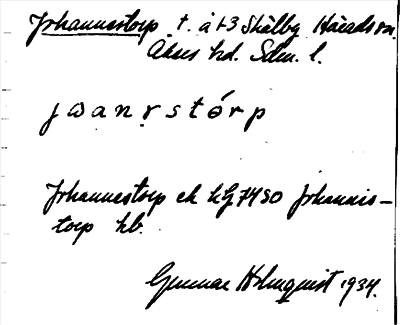 Johannestorp t. å 1-3 Skälby Härads sn.
Åkers hd. Sdm. l.
jωanṛstórp
Johannestorp ek hLg 7450 Johannis-
torp hb.
Gunnar Holmquist 1934.